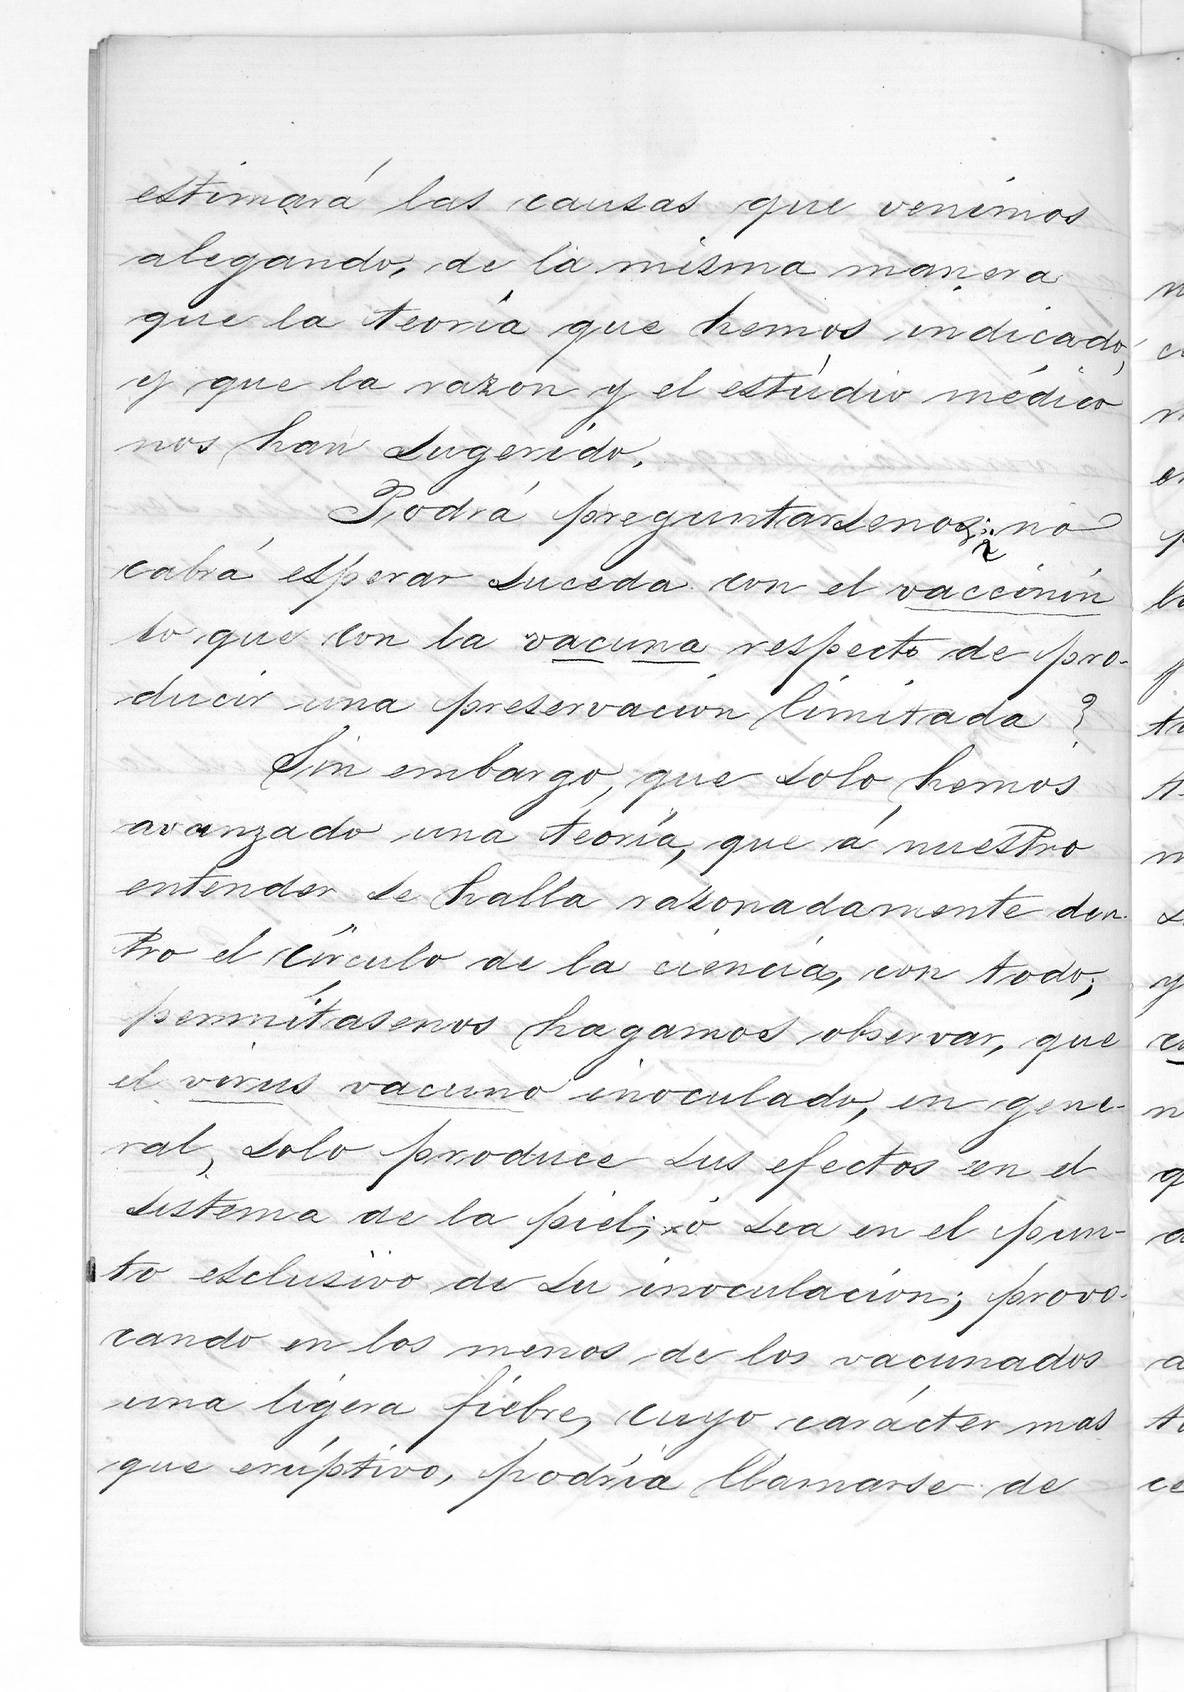 estimará las causas que venimos
alegando, de la misma manera
que la teoría que hemos indicado,
y que la razon y el estúdio médico
nos han sugerido.
Podrá preguntarsenos: ¿no
cabrá esperar suceda con el vaccinin
lo que con la vacuna respecto de pro-
ducir una preservación limitada?
Sin embargo, que solo hemos
avanzado una teoría, que á nuestro
entender se halla razonadamente den-
tro el círculo de la ciencia, con todo;
permítasenos hagamos observar, que
el virus vacuno inoculado, en gene-
ral, solo produce sus efectos en el
sistema de la piel; ó sea en el pun-
to esclusivo de su inoculación; provo-
cando en los menos de los vacunados
una ligera fiebre, cuyo carácter mas
que erúptivo, podría llamarse de